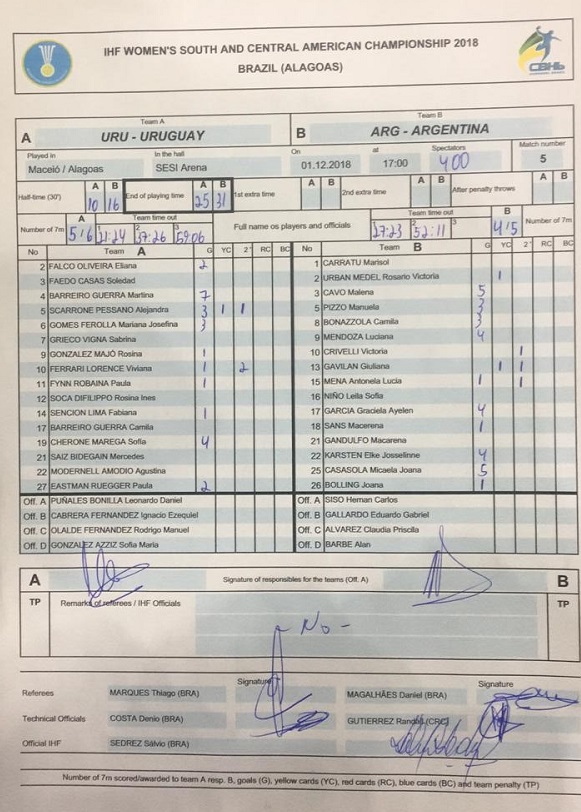 IHF WOMEN'S SOUTH AND CENTRAL AMERICAN CHAMPIONSHIP 2018
BRAZIL (ALAGOAS)
CBHb
Team A Team B
A URU - URUGUAY B ARG - ARGENTINA
Played in In the hall On at Spectators Match number
Maceió / Alagoas SESI Arena 01.12.2018 17:00 400 5
Half-time (30') A 10 B 16 End of playing time A 25 B 31 1st extra time A B 2nd extra time A B After penalty throws A B
Number of 7m A 5/6 Team time out 1 21:24 2 37:26 3 59:06 Full name os players and officials Team time out 27:23 2 52:11 3 B 4/5 Number of 7m
No Team A G YC 2' RC BC No Team B G YC 2' RC BC
2 FALCO OLIVEIRA Eliana 2 1 CARRATU Marisol
3 FAEDO CASAS Soledad 2 URBAN MEDEL Rosario Victoria 1
4 BARREIRO GUERRA Martina 7 3 CAVO Malena 5
5 SCARRONE PESSANO Alejandra 3 1 1 5 PIZZO Manuela 3
6 GOMES FEROLLA Mariana Josefina 3 8 BONAZZOLA Camila 3
7 GRIECO VIGNA Sabrina 9 MENDOZA Luciana 4
9 GONZALEZ MAJÓ Rosina 1 10 CRIVELLI Victoria 1
10 FERRARI LORENCE Viviana 1 2 13 GAVILAN Giuliana 1 1
11 FYNN ROBAINA Paula 1 15 MENA Antonela Lucia 1 1
12 SOCA DIFILIPPO Rosina Ines 16 NIÑO Leila Sofia
14 SENCION LIMA Fabiana 1 17 GARCIA Graciela Ayelen 4
17 BARREIRO GUERRA Camila 18 SANS Macerena 1
19 CHERONE MAREGA Sofia 4 21 GANDULFO Macarena
21 SAIZ BIDEGAIN Mercedes 22 KARSTEN Elke Josselinne 4
22 MODERNELL AMODIO Agustina 25 CASASOLA Micaela Joana 5
27 EASTMAN RUEGGER Paula 2 26 BOLLING Joana 1
Off. A PUÑALES BONILLA Leonardo Daniel Off. A SISO Hernan Carlos
Off. B CABRERA FERNANDEZ Ignacio Ezequiel Off. B GALLARDO Eduardo Gabriel
Off. C OLALDE FERNANDEZ Rodrigo Manuel Off. C ALVAREZ Claudia Priscila
Off. D GONZALEZ AZZIZ Sofia Maria Off. D BARBE Alan
A Signature of responsibles for the teams (Off. A) B
TP Remarks of referees / IHF Officials TP
- No -
Signature Signature
Referees MARQUES Thiago (BRA) MAGALHÃES Daniel (BRA)
Technical Officials COSTA Denio (BRA) GUTIERREZ (CRC)
Official IHF SEDREZ Sálvio (BRA)
Number of 7m scored/awarded to team A resp. B, goals (G), yellow cards (YC), red cards (RC), blue cards (BC) and team penalty (TP)